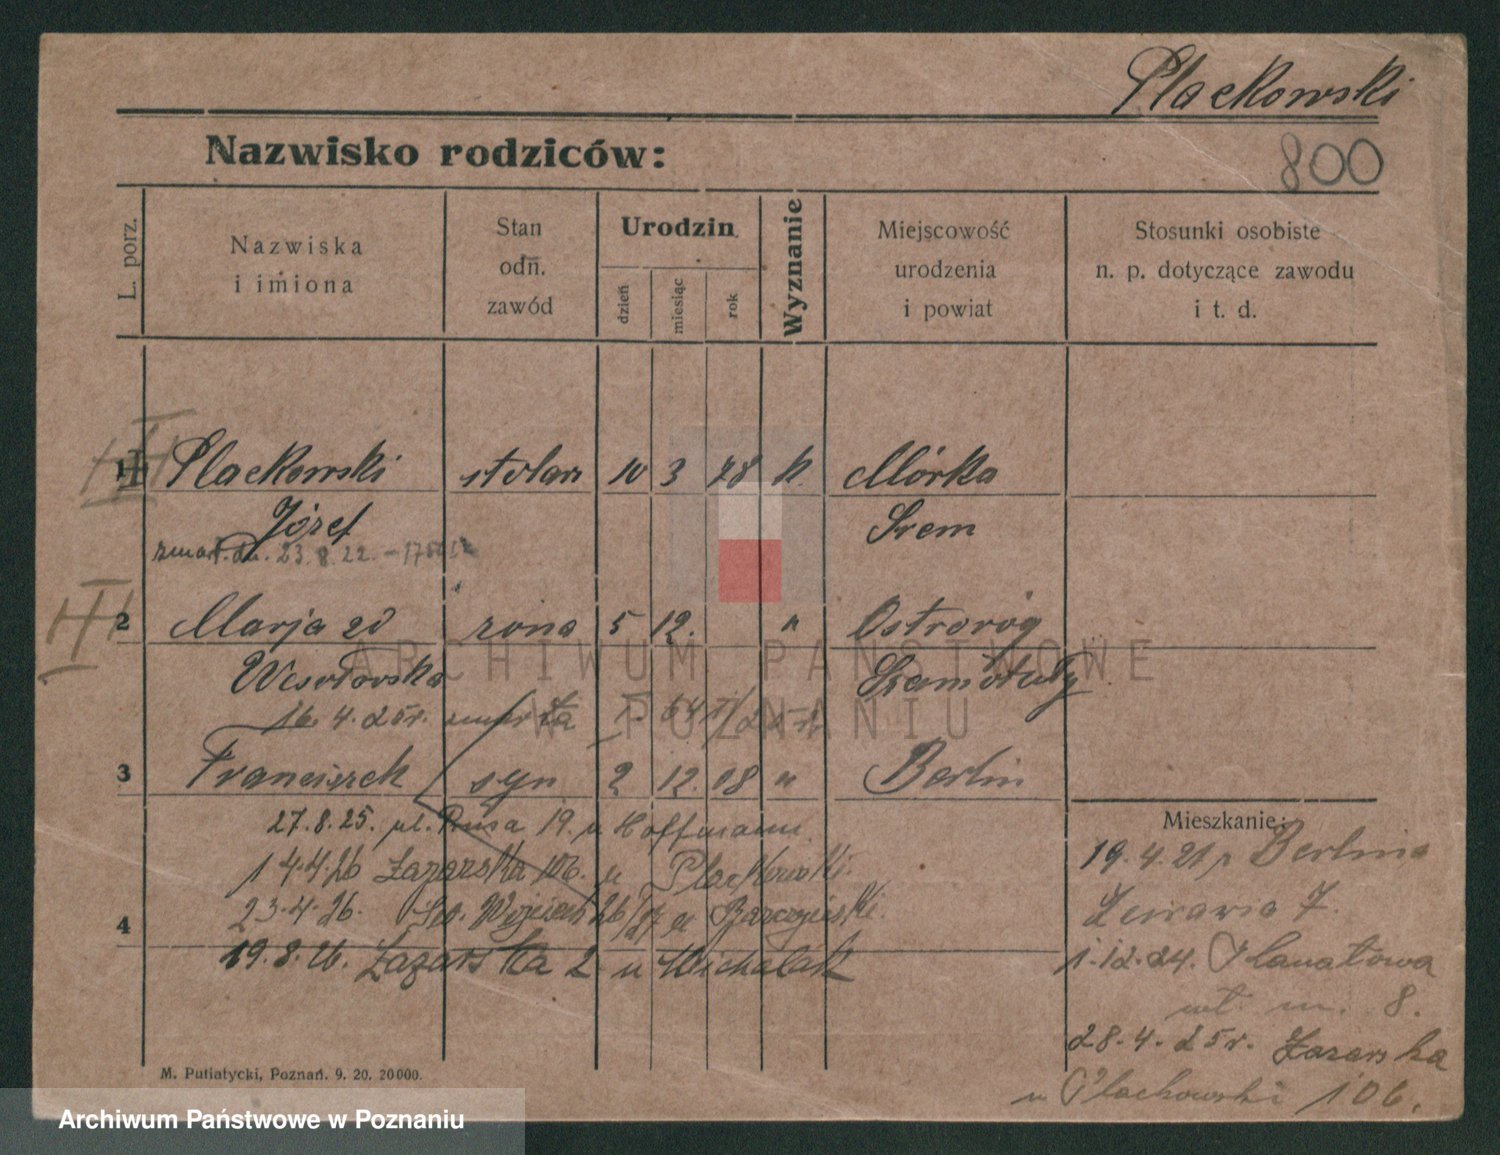 Plackowski
Nazwisko rodziców:
800
L. porz.
Nazwiska
i imiona
Stan
odn.
zawód
Urodzin
dzień
miesiąc
rok
Wyznanie
Miejscowość
urodzenia
i powiat
Stosunki osobiste
n. p. dotyczące zawodu
i t. d.
1 Plackowski stolarz 10 3 78 k. Mórka
Józef Śrem
zmarł dn. 23.8.22.
2 Marja zd żona 5 12. " Ostroróg
Wesołowska Szamotuły
16.4.25r. zmarła
3 Franciszek syn 2 12. 08 " Berlin
27.8.25. ul. Prusa 19. u Hoffmann
14.4.26 Łazarska 106. u Plackowski.
4
23.4.26. Św. Wojciech 26/27 u
19.8.26. Łazarska 2 u Michalak
Mieszkanie:
19.4.21 z Berlina
Żurawia 7.
1.12.24.
m. 8.
28.4.25r. Łazarska
u Plackowski 106.
M. Putiatycki, Poznań. 9. 20. 20000.
ARCHIWUM PAŃSTWOWE
W POZNANIU
Archiwum Państwowe w Poznaniu